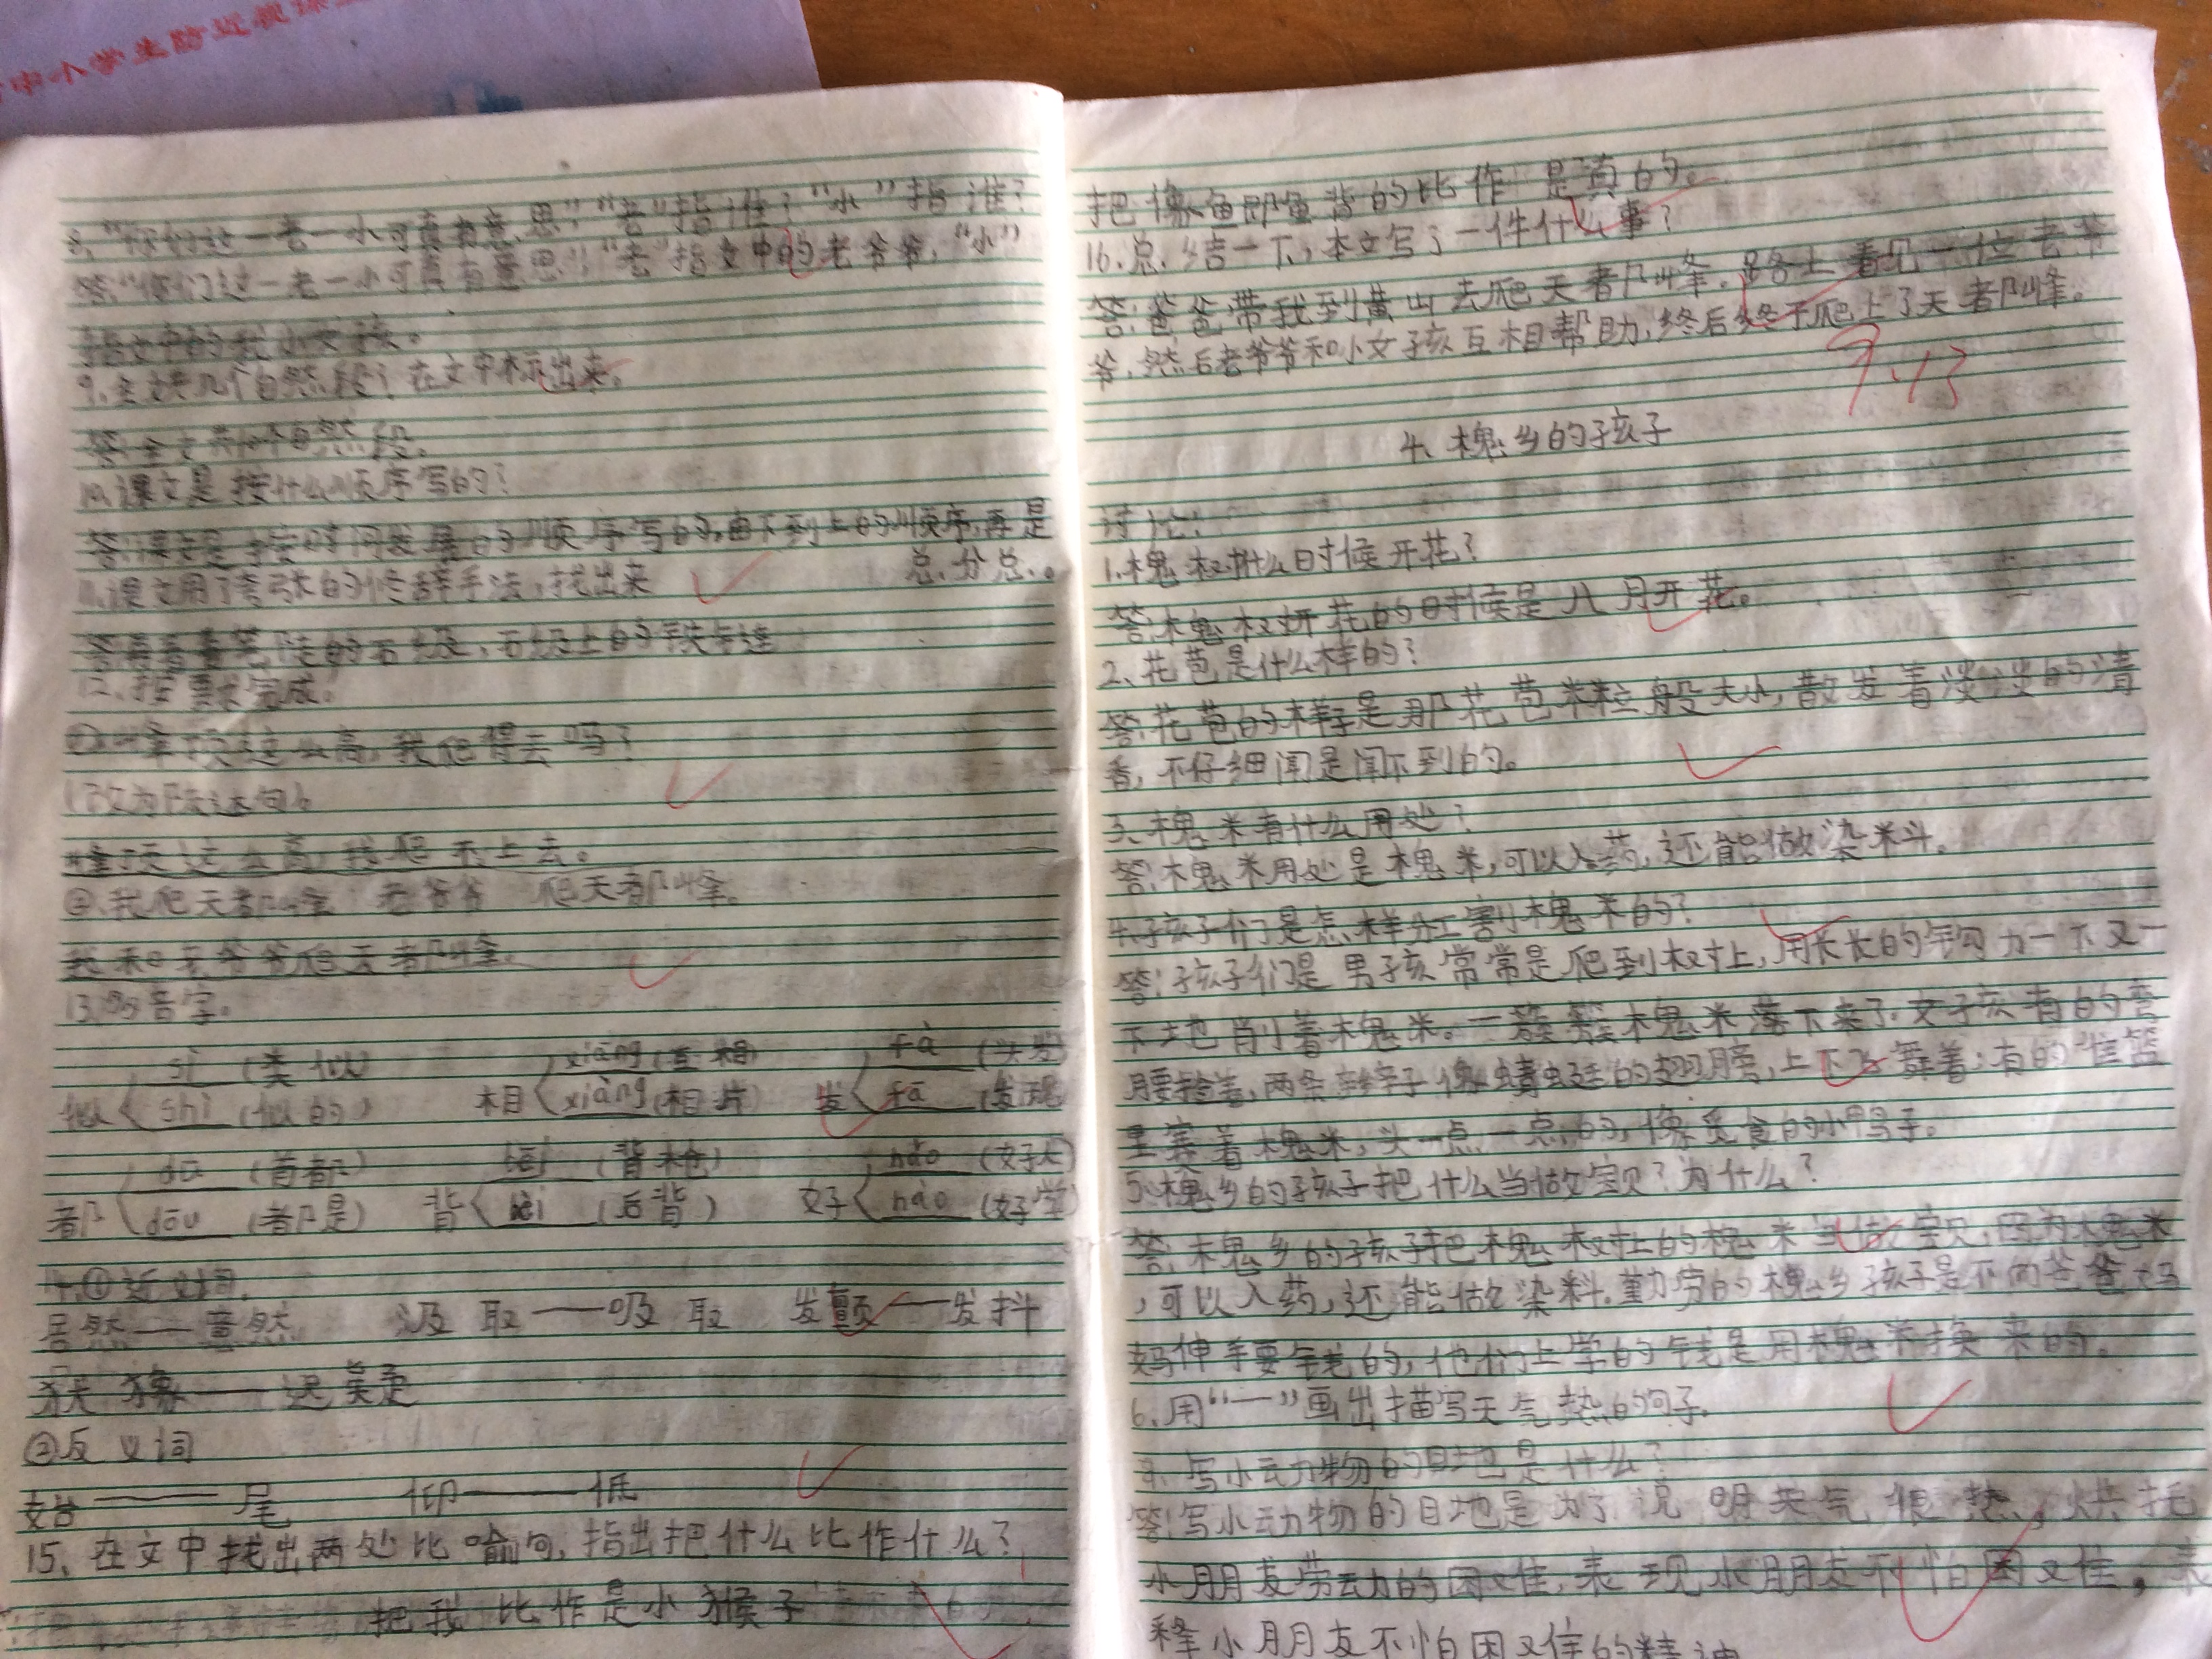 中小学生防近视课
8、“你们这一老一小可真有意思”,“老”指谁？“小”指谁？
答:“你们这一老一小可真有意思”,“老”指文中的老爷爷,“小”
指文中的我小女孩。
9、全文共几个自然段？在文中标出来。
答:全文共10个自然段。
10、课文是按什么顺序写的？
答:课文是按时间发展的顺序写的,由下到上的顺序,再是
总.分总.。
11、课文用了夸张的修辞手法,找出来
答:笔陡的石级,石级上的铁链
12、按要求完成。
①峰顶这么高,我爬得去吗？
(改为陈述句)
峰顶这么高,我爬不上去。
②我爬天都峰 老爷爷 爬天都峰。
我和老爷爷爬天都峰。
13、多音字。
sì (类似 xiāng (互相) fà (头发
似 shì (似的) 相 xiàng (相片 发 fā (发现
dū (首都) bēi (背枪) hǎo (好人
都 dōu (都是) 背 bèi (后背) 好 hào (好学
14.①近义词.
居然——竟然 汲取——吸取 发颤——发抖
犹豫——迟疑
②反义词
始——尾 仰——低
15、在文中找出两处比喻句,指出把什么比作什么？
把我比作是小猴子
把像鱼即鱼背的比作 是真的。
16.总结一下,本文写了一件什么事？
答:爸爸带我到黄山去爬天都峰.路上看见一位老爷
爷,然后老爷爷和小女孩互相帮助,终后终于爬上了天都峰。
9.13
4、槐乡的孩子
讨论:
1.槐树什么时候开花？
答:槐树开花的时候是八月开花。
2、花苞是什么样的？
答:花苞的样子是那花苞米粒般大小,散发着淡淡的清
香,不仔细闻是闻不到的。
3、槐米有什么用处？
答:槐米用处是槐米,可以入药,还能做染料.
4.孩子们是怎样分工割槐米的？
答:孩子们是男孩常常是爬到树上,用长长的钩刀一下又一
下地削着槐米。一簇簇槐米落下来了.女孩有的弯
腰捡着,两条辫子像蜻蜓的翅膀,上下飞舞着;有的往篮
里塞着槐米,头一点一点的,像觅食的小鸭子。
5、槐乡的孩子把什么当做宝贝？为什么？
答:槐乡的孩子把槐树上的槐米当做宝贝,因为槐米
,可以入药,还能做染料.勤劳的槐乡孩子是不向爸爸妈
妈伸手要钱的,他们上学的钱是用槐米换来的。
6、用“—”画出描写天气热的句子.
7.写小动物的目地是什么？
答:写小动物的目地是为了说明天气很热,烘托
小朋友劳动的困难,表现小朋友不怕困难,表
释小朋友不怕困难的精神